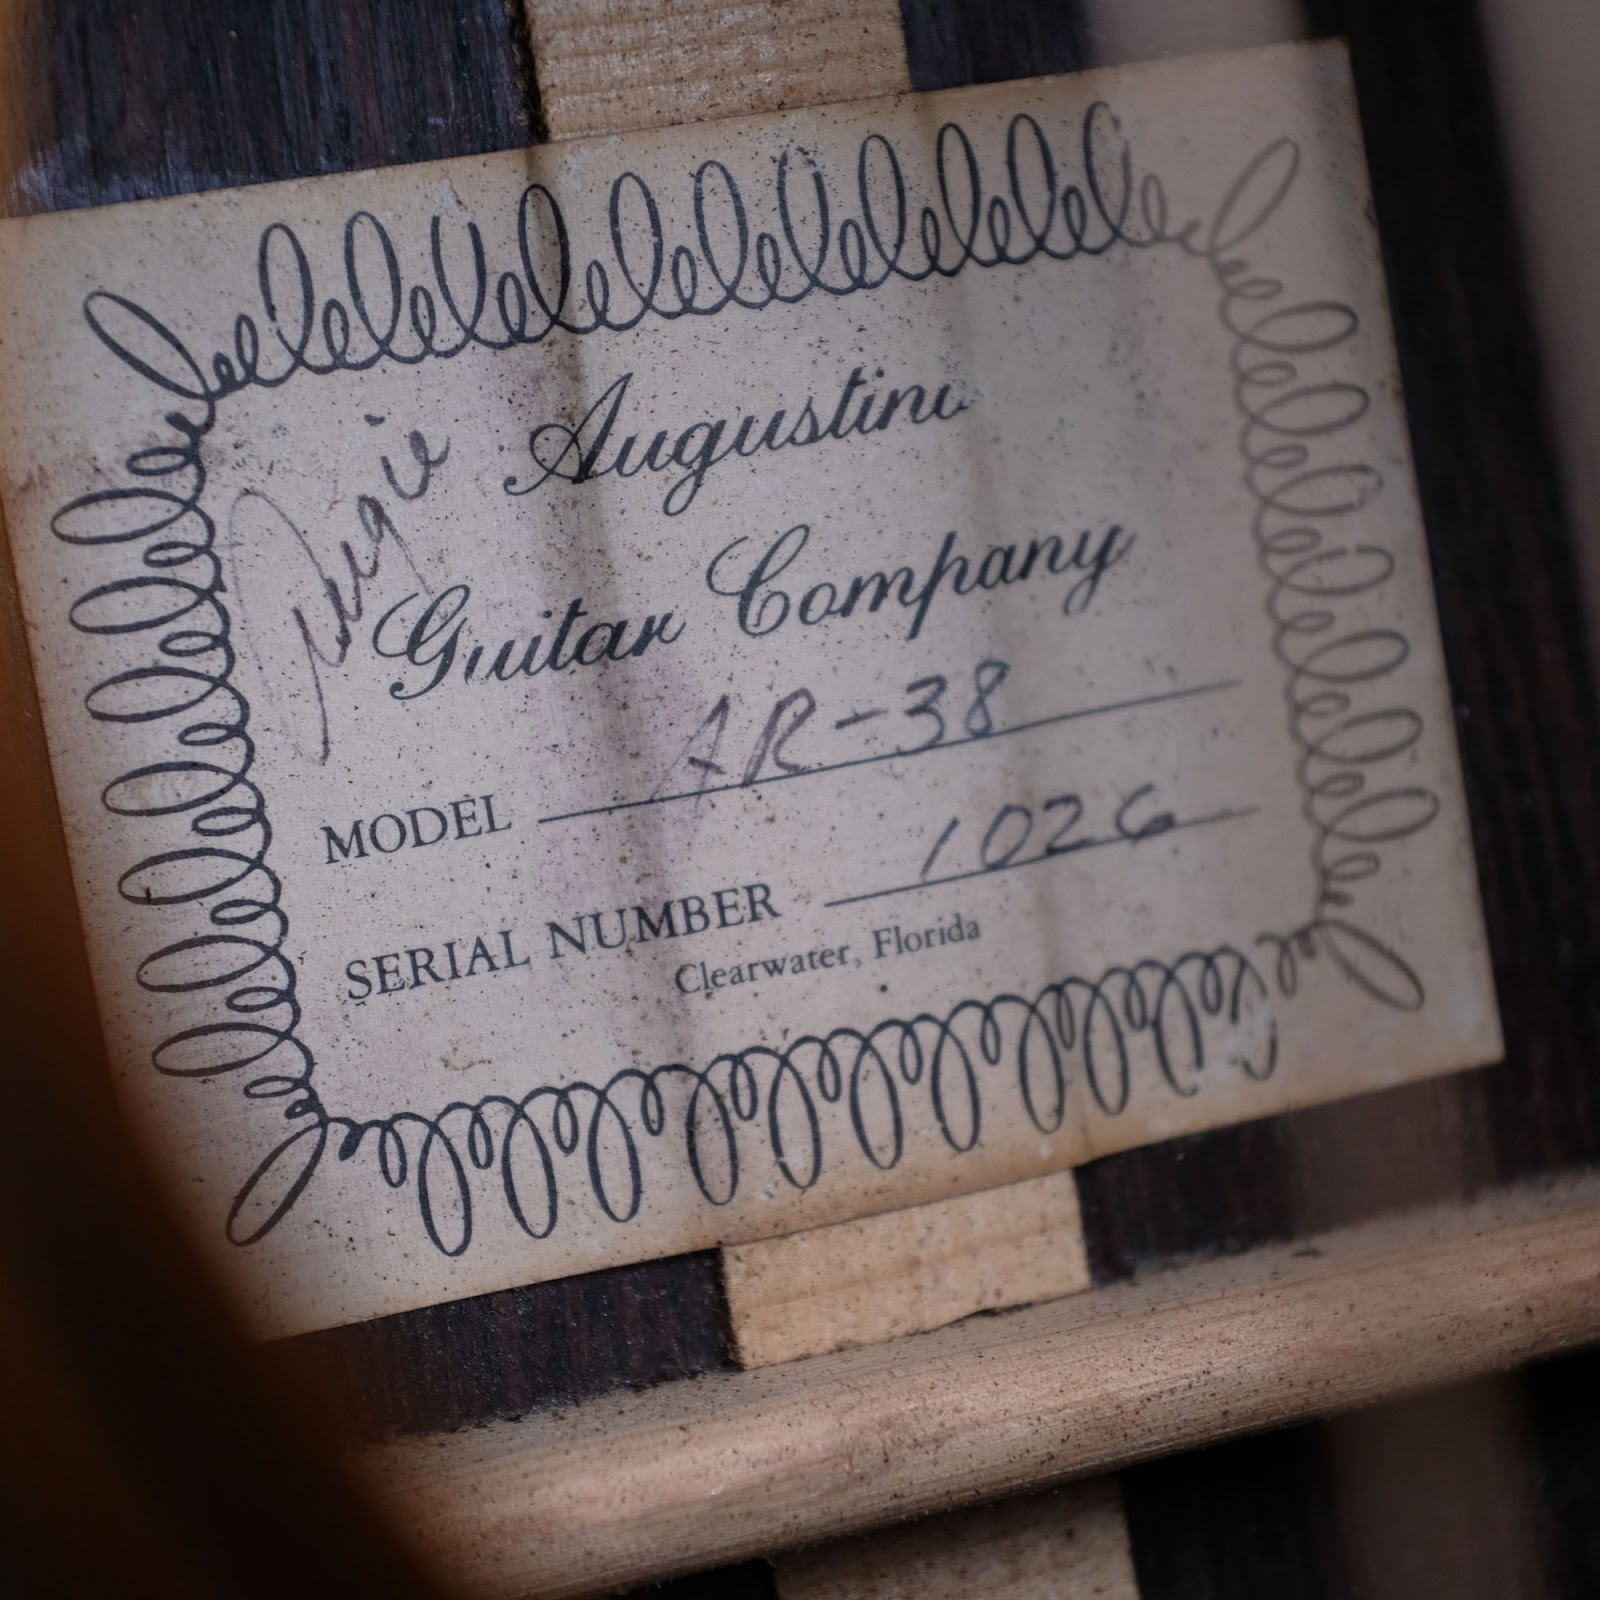 Augie
Augustino
Guitar Company
MODEL AR-38
SERIAL NUMBER 1026
Clearwater, Florida